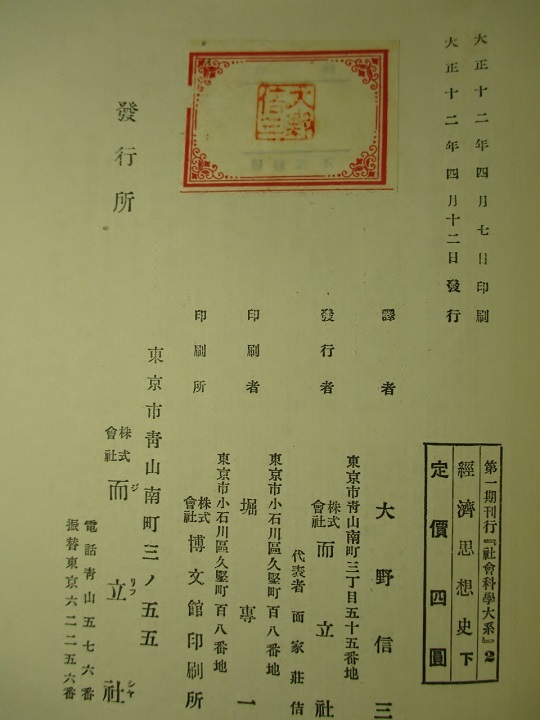 大正十二年四月七日印刷
大正十二年四月十二日發行
第一期刊行『社會科學大系』2
經濟思想史 下
定價四圓
大野信三
譯者 大野信三
東京市靑山南町三丁目五十五番地
發行者 株式會社 而立社
代表者 面家莊佶
東京市小石川區久堅町百八番地
印刷者 堀專一
東京市小石川區久堅町百八番地
印刷所 株式會社 博文館印刷所
發行所
東京市靑山南町三ノ五五
株式會社 而立社
ジ リフ シヤ
電話靑山五七六番
振替東京六二二五六番